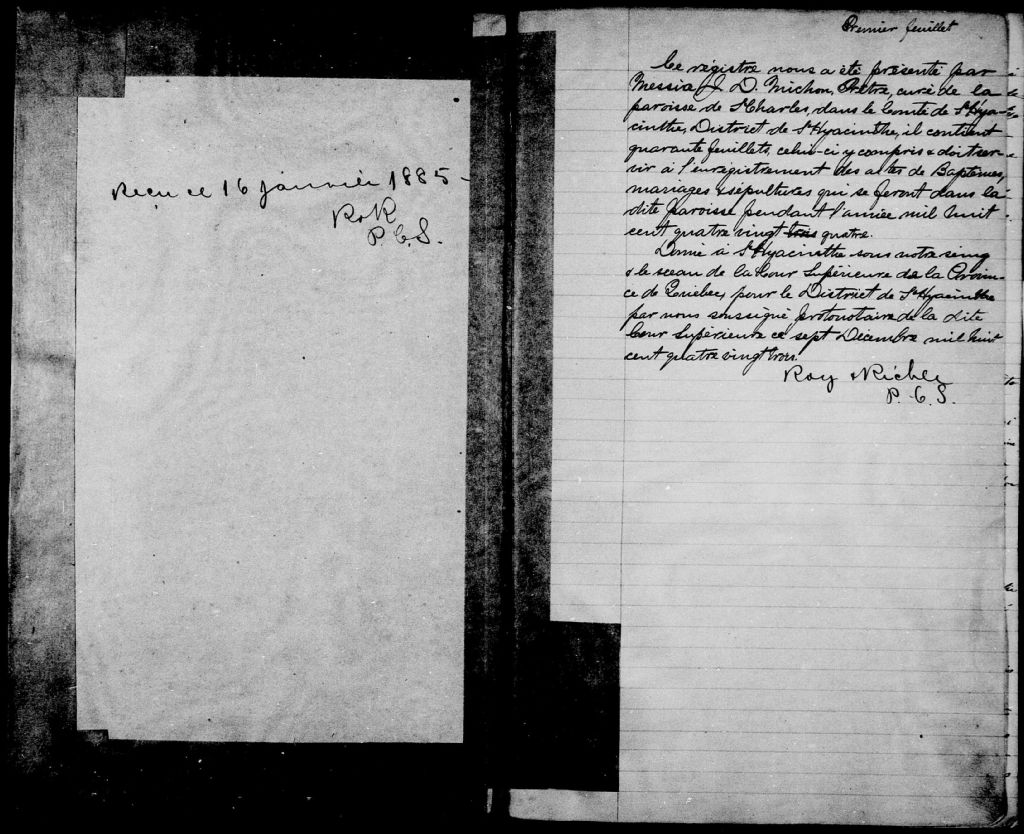 Reçu ce 16 janvier 1885 -
R & R
P. C. S.
Premier feuillet
Ce registre nous a été présenté par
Messire J. D. Michon, Prêtre, curé de la
paroisse de St Charles, dans le Comté de St Hya-
cinthe, District de St Hyacinthe, il contient
quarante feuillets, celui-ci y compris & doit ser-
vir à l'enregistrement des actes de Baptêmes,
mariages & sépultures qui se feront dans la
dite paroisse pendant l'année mil huit
cent quatre vingt trois quatre.
Donné à St Hyacinthe sous notre seing
& le sceau de la Cour Supérieure de la Provin-
ce de Québec, pour le District de St Hyacinthe
par nous soussigné, protonotaire de la dite
Cour Supérieure ce sept Décembre mil huit
cent quatre vingt trois.
Roy & Richer
P. C. S.